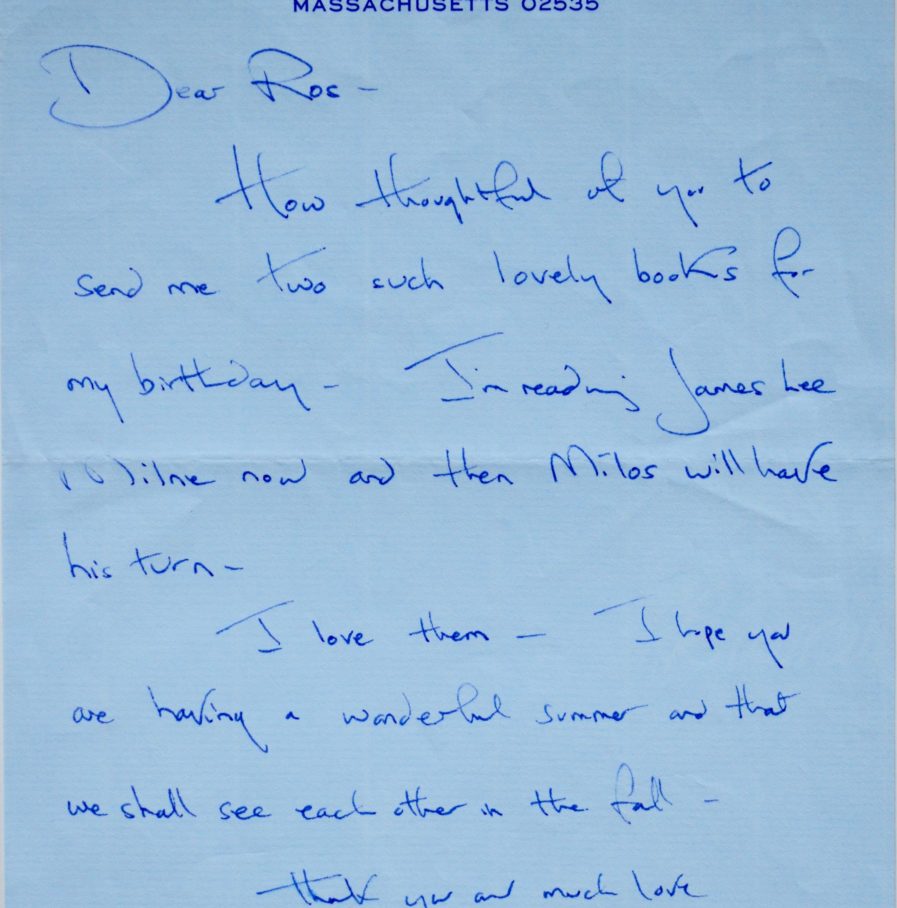 MASSACHUSETTS 02535
Dear Ros –
How thoughtful of you to
send me two such lovely books for
my birthday – I'm reading James Lee
Milne now and then Milos will have
his turn –
I love them – I hope you
are having a wonderful summer and that
we shall see each other in the fall –
thank you and much love